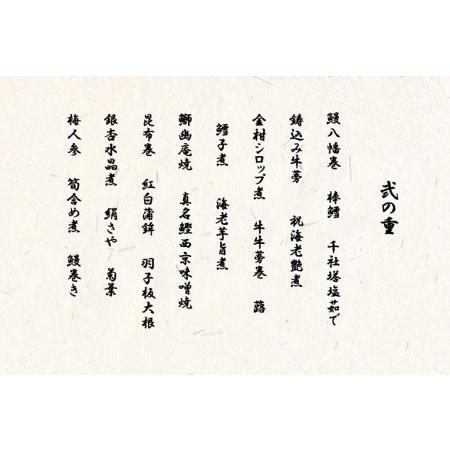 弐の重
鰻八幡巻 棒鱈 千社塔塩茹で
鋳込み牛蒡 祝海老艶煮
金柑シロップ煮 牛牛蒡巻 蕗
鱈子煮 海老芋旨煮
鰤幽庵焼 真名鰹西京味噌焼
昆布巻 紅白蒲鉾 羽子板大根
銀杏水晶煮 絹さや 菊葉
梅人参 筍含め煮 鰻巻き